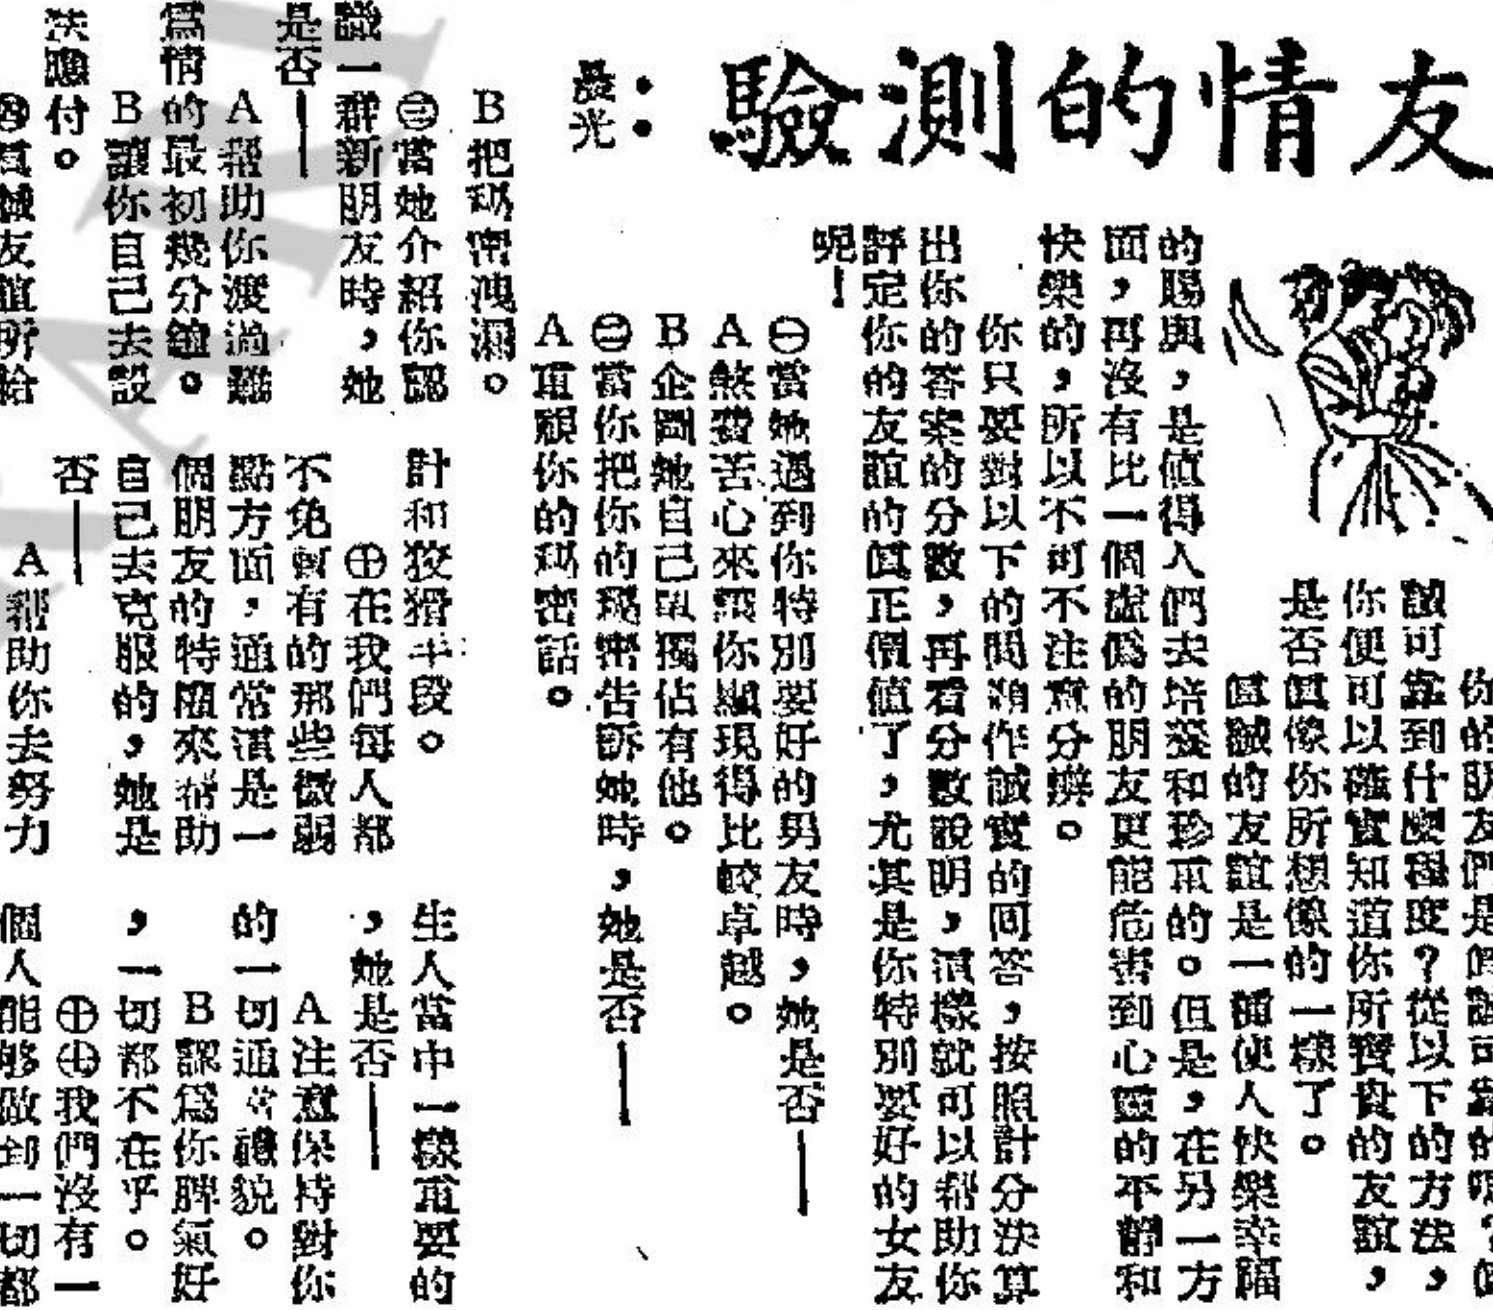 友情的測驗：
晨光
你的朋友們是
可靠到什麼程度？從以下的方法，
你便可以確實知道你所寶貴的友誼，
是否眞像你所想像的一樣了。
眞誠的友誼是一種使人快樂幸福
的賜與，是値得人們去培養和珍重的。但是，在另一方
面，再沒有比一個虛僞的朋友更能危害到心靈的不靜和
快樂的，所以不可不注意分辨。
你只要對以下的問題作誠實的回答，按照計分決算
出你的答案的分數，再看分數說明，這樣就可以幫助你
評定你的友誼的眞正價値了，尤其是你特別要好的女友
呢！
㊀當她遇到你特別要好的男友時，她是否——
A煞費苦心來讓你顯現得比較卓越。
B企圖她自己單獨佔有他。
㊁當你把你的秘密告訴她時，她是否——
A重顧你的秘密話。
B把秘密洩漏。
㊂當她介紹你認
識一群新朋友時，她
是否——
A幫助你渡過難
爲情的最初幾分鐘。
B讓你自己去設
法應付。
友誼所給
計和狡猾手段。
㊉在我們每人都
不免暫有的那些微弱
點方面，通常這是一
個朋友的特隨來幫助
自己去克服的，她是
否——
A幫助你去努力
生人當中一樣重要的
，她是否——
A注意保持對你
的一切通常禮貌。
B認爲你脾氣好
，一切都不在乎。
㊉㊆我們沒有一
個人能够做到一切都